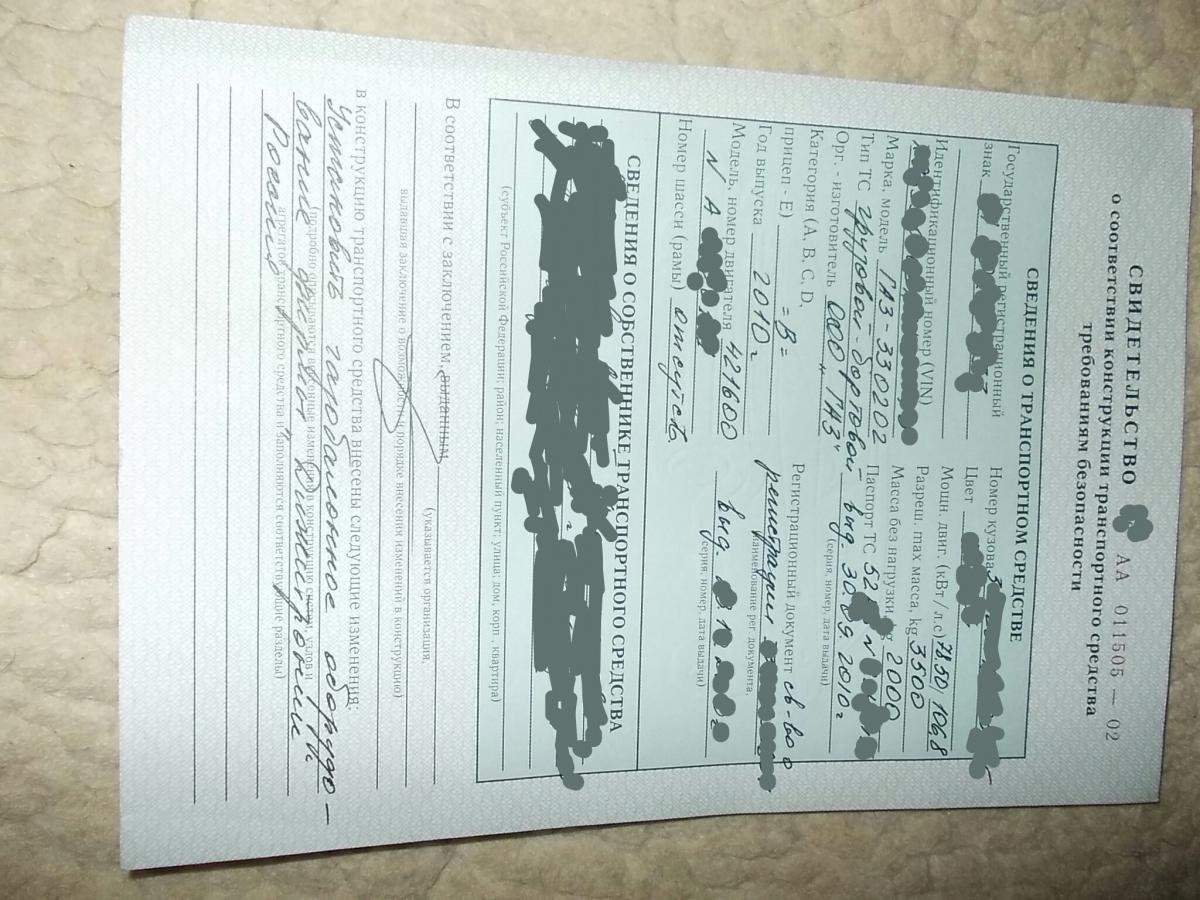 СВИДЕТЕЛЬСТВО АА 011505 — 02
о соответствии конструкции транспортного средства
требованиям безопасности
СВЕДЕНИЯ О ТРАНСПОРТНОМ СРЕДСТВЕ
Государственный регистрационный
знак
Идентификационный номер (VIN)
Марка, модель ГАЗ-330202
Тип ТС грузовой-бортовой
Орг. - изготовитель ООО "ГАЗ"
Категория (A, B, C, D,
прицеп - E) =В=
Год выпуска 2010 г
Модель, номер двигателя 421600
N А
Номер шасси (рамы) отсутств
Номер кузова
Цвет
Мощн. двиг. (кВт / л.с) 78.50/106,8
Разреш. max масса, kg 3500
Масса без нагрузки, kg 2000
Паспорт ТС 52
выд. 30.09.2010 г
(серия, номер, дата выдачи)
Регистрационный документ св-во о
регистрации
(наименование рег. документа,
выд.
серия, номер, дата выдачи)
СВЕДЕНИЯ О СОБСТВЕННИКЕ ТРАНСПОРТНОГО СРЕДСТВА
(субъект Российской Федерации; район; населенный пункт; улица; дом, корп., квартира)
В соответствии с заключением, выданным
(указывается организация,
выдавшая заключение о возможности и порядке внесения изменений в конструкцию)
в конструкцию транспортного средства внесены следующие изменения:
Установить газобаллонное оборудо-
(подробно описываются внесенные изменения в конструкцию систем, узлов и
вание
агрегатов транспортного средства и заполняются соответствующие разделы)
России